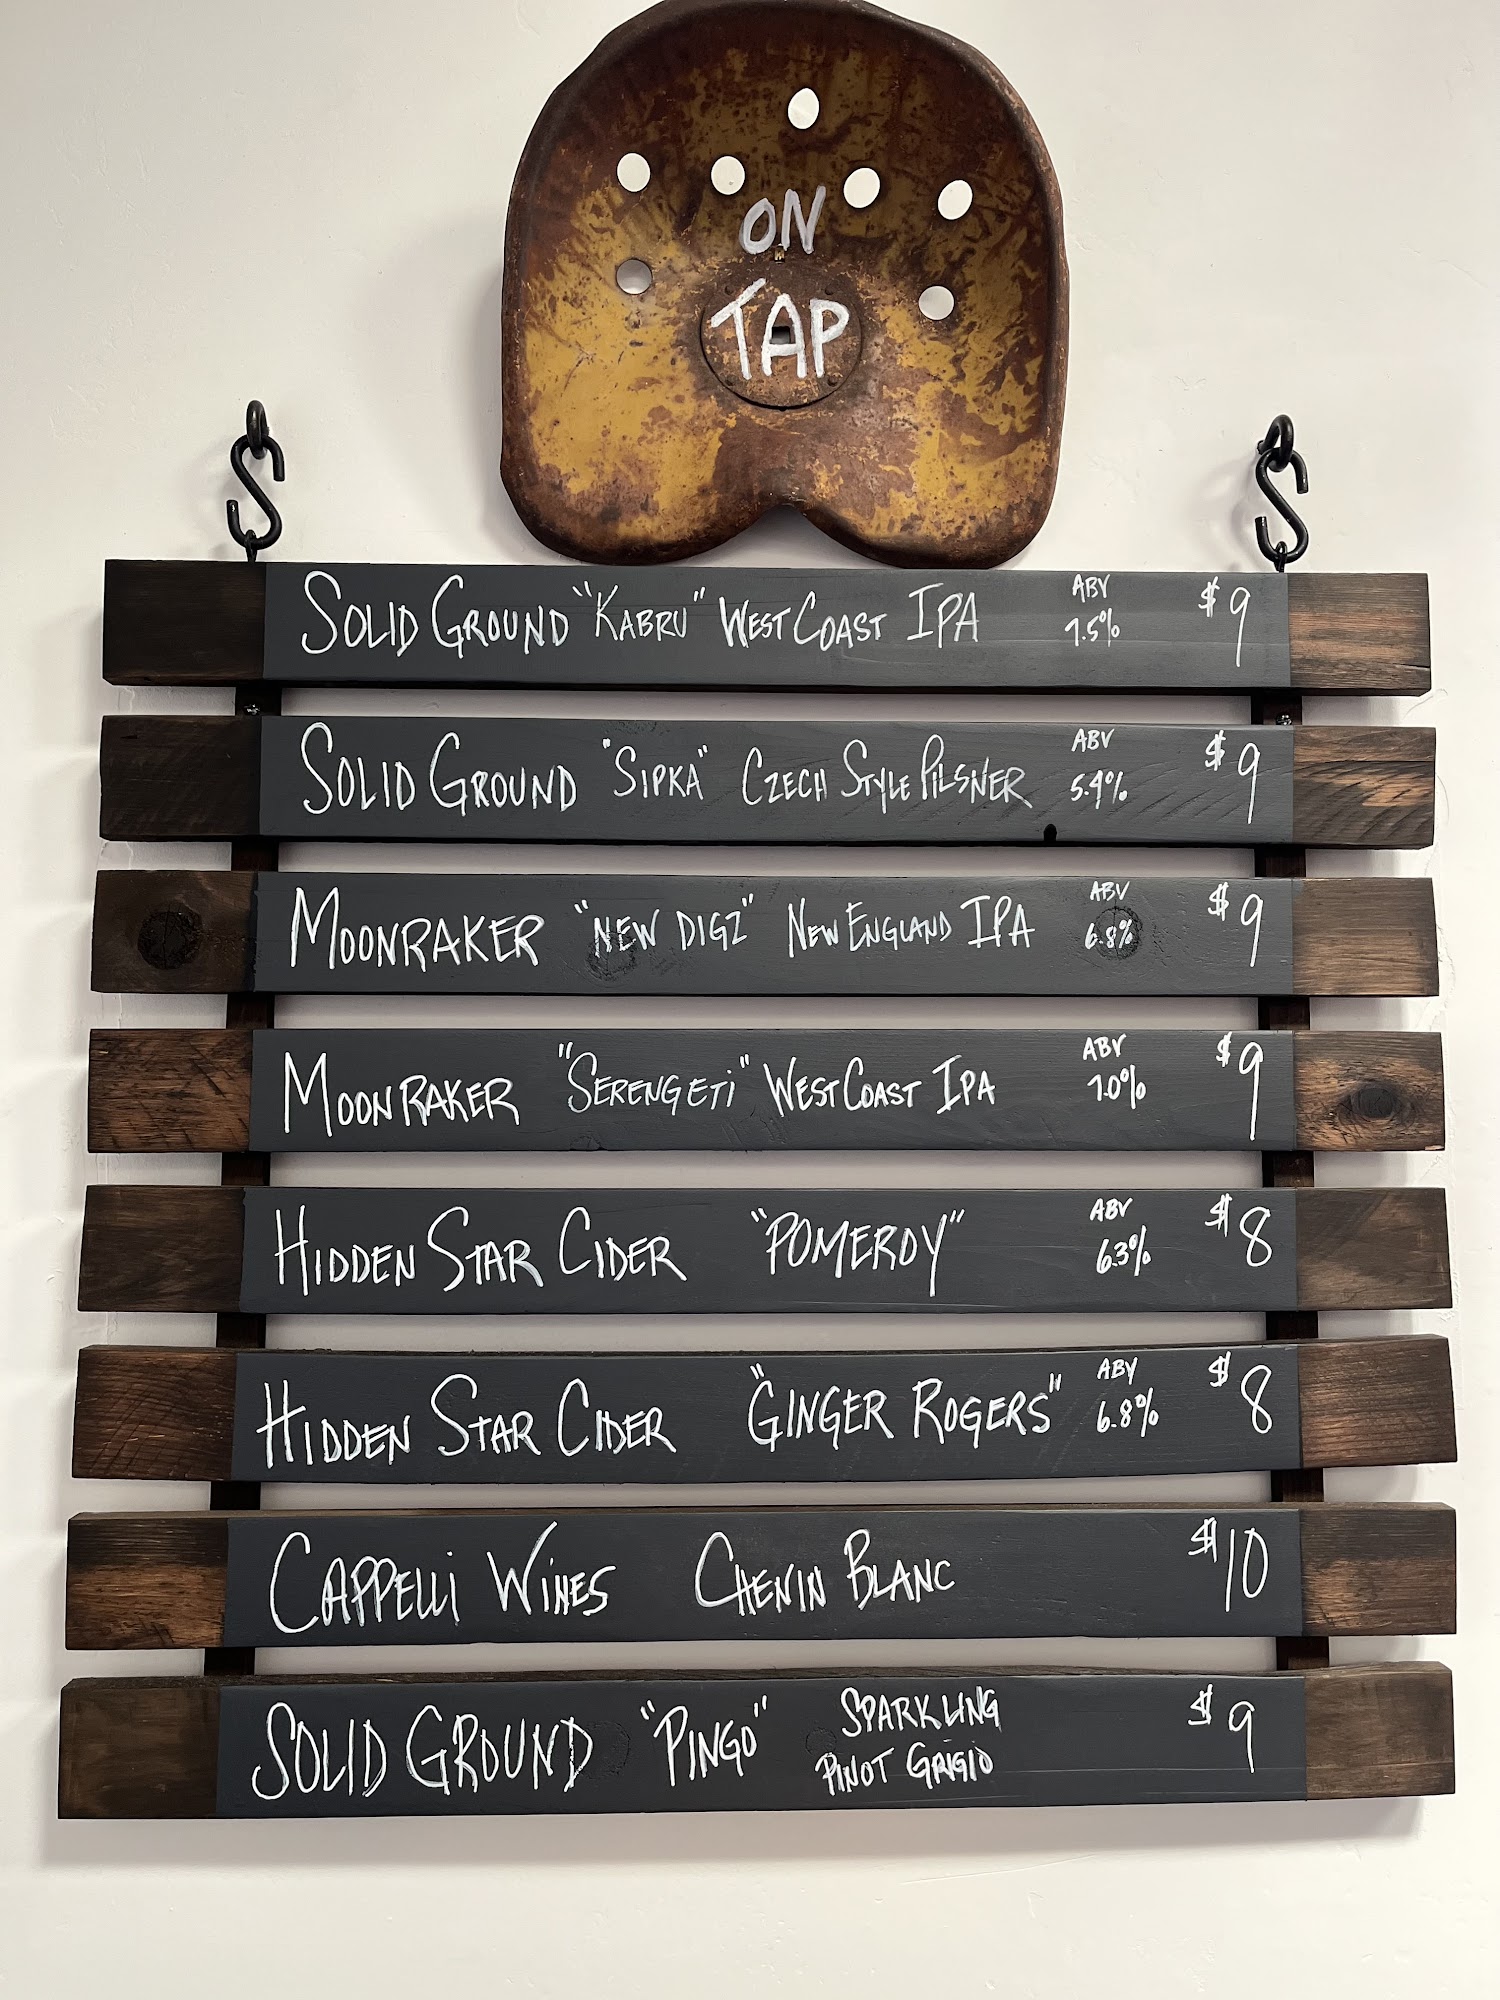 ON
TAP
SOLID GROUND "KABRU" WEST COAST IPA ABV 7.5% $9
SOLID GROUND "SIPKA" CZECH STYLE PILSNER ABV 5.4% $9
MOONRAKER "NEW DIGZ" NEW ENGLAND IPA ABV 6.8% $9
MOONRAKER "SERENGETI" WEST COAST IPA ABV 7.0% $9
HIDDEN STAR CIDER "POMEROY" ABV 6.3% $8
HIDDEN STAR CIDER "GINGER ROGERS" ABV 6.8% $8
CAPPELLI WINES CHENIN BLANC $10
SOLID GROUND "PINGO" SPARKLING PINOT GRIGIO $9